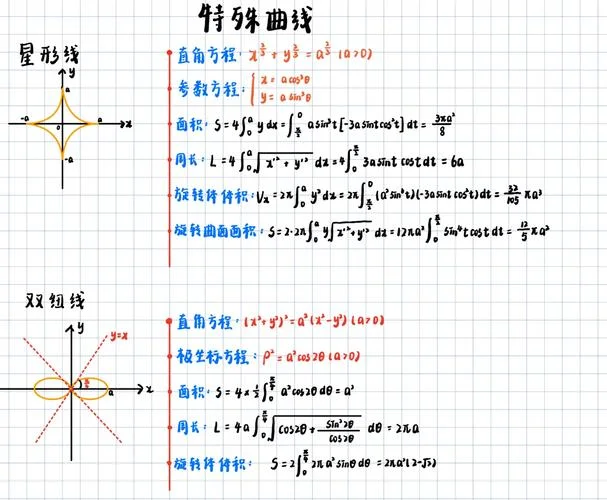 特殊曲线
星形线
直角方程: x^{2/3} + y^{2/3} = a^{2/3} (a>0)
参数方程: { x = a cos³θ
y = a sin³θ
y
a
-a 0 a x
-a
面积: S=4∫_0^a y dx = ∫_{π/2}^0 a sin³t [-3a sint cos²t] dt = 3πa²/8
周长: L = 4∫_0^a √(x'² + y'²) dx = 4∫_0^{π/2} 3a sint cost dt = 6a
旋转体体积: Vx = 2π∫_0^a y² dx = 2π∫_{π/2}^0 (a² sin⁶t)(-3a sint cos²t) dt = 32/105 πa³
旋转曲面面积: S = 2·2π∫_0^a y√(x'² + y'²) dx = 12πa²∫_0^{π/2} sin⁴t cost dt = 12/5 πa²
双纽线
直角方程: (x²+y²)² = a²(x²-y²) (a>0)
y
y=x
a x
极坐标方程: ρ² = a² cos2θ (a>0)
面积: S = 4×1/2∫_0^{π/4} a² cos2θ dθ = a²
周长: L = 4a∫_0^{π/4} √(cos2θ + sin²2θ/cos2θ) dθ = 2πa
旋转体体积: S = 2∫_0^{π/4} 2πa² sinθ dθ = 2πa²(2-√2)